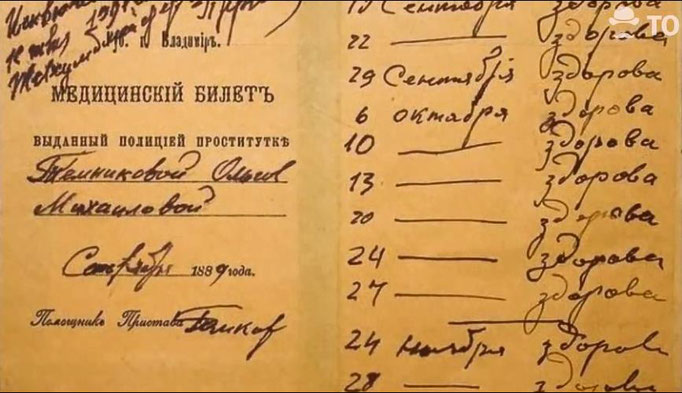 Губ. г. Владиміръ.
МЕДИЦИНСКІЙ БИЛЕТЪ
ВЫДАННЫЙ ПОЛИЦІЕЙ ПРОСТИТУТКѢ
Темниковой Ольгѣ
Михайловой
Сентября 1889 года.
Помощникъ Пристава
здорова
22 — здорова
29 Сентября здорова
6 октября здорова
10 — здорова
13 — здорова
20 — здорова
24 — здорова
27 — здорова
24 ноября здорова
28 — здорова
ТО